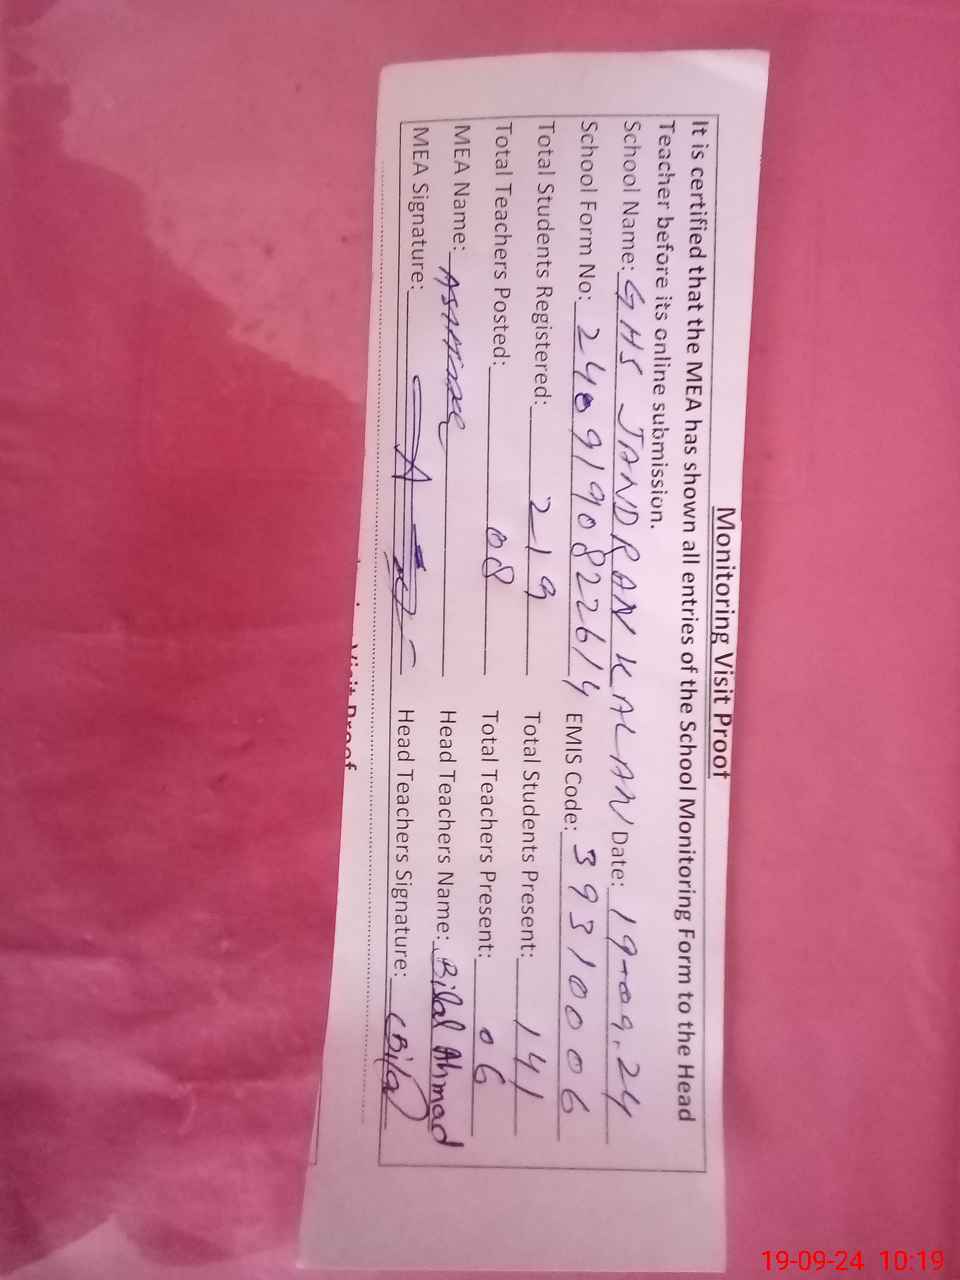 Monitoring Visit Proof
It is certified that the MEA has shown all entries of the School Monitoring Form to the Head
Teacher before its online submission.
School Name: GHS JANDRAN KALAN Date: 19-09.24
School Form No: 2409190822614 EMIS Code: 39310006
Total Students Registered: 219 Total Students Present: 141
Total Teachers Posted: 08 Total Teachers Present: 06
MEA Name: Head Teachers Name: Bilal Ahmad
MEA Signature: Head Teachers Signature: (Bilal)
Visit Proof
19-09-24 10:19